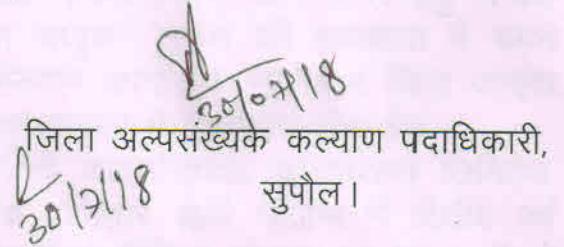 30/07/18
जिला अल्पसंख्यक कल्याण पदाधिकारी,
30/7/18 सुपौल।